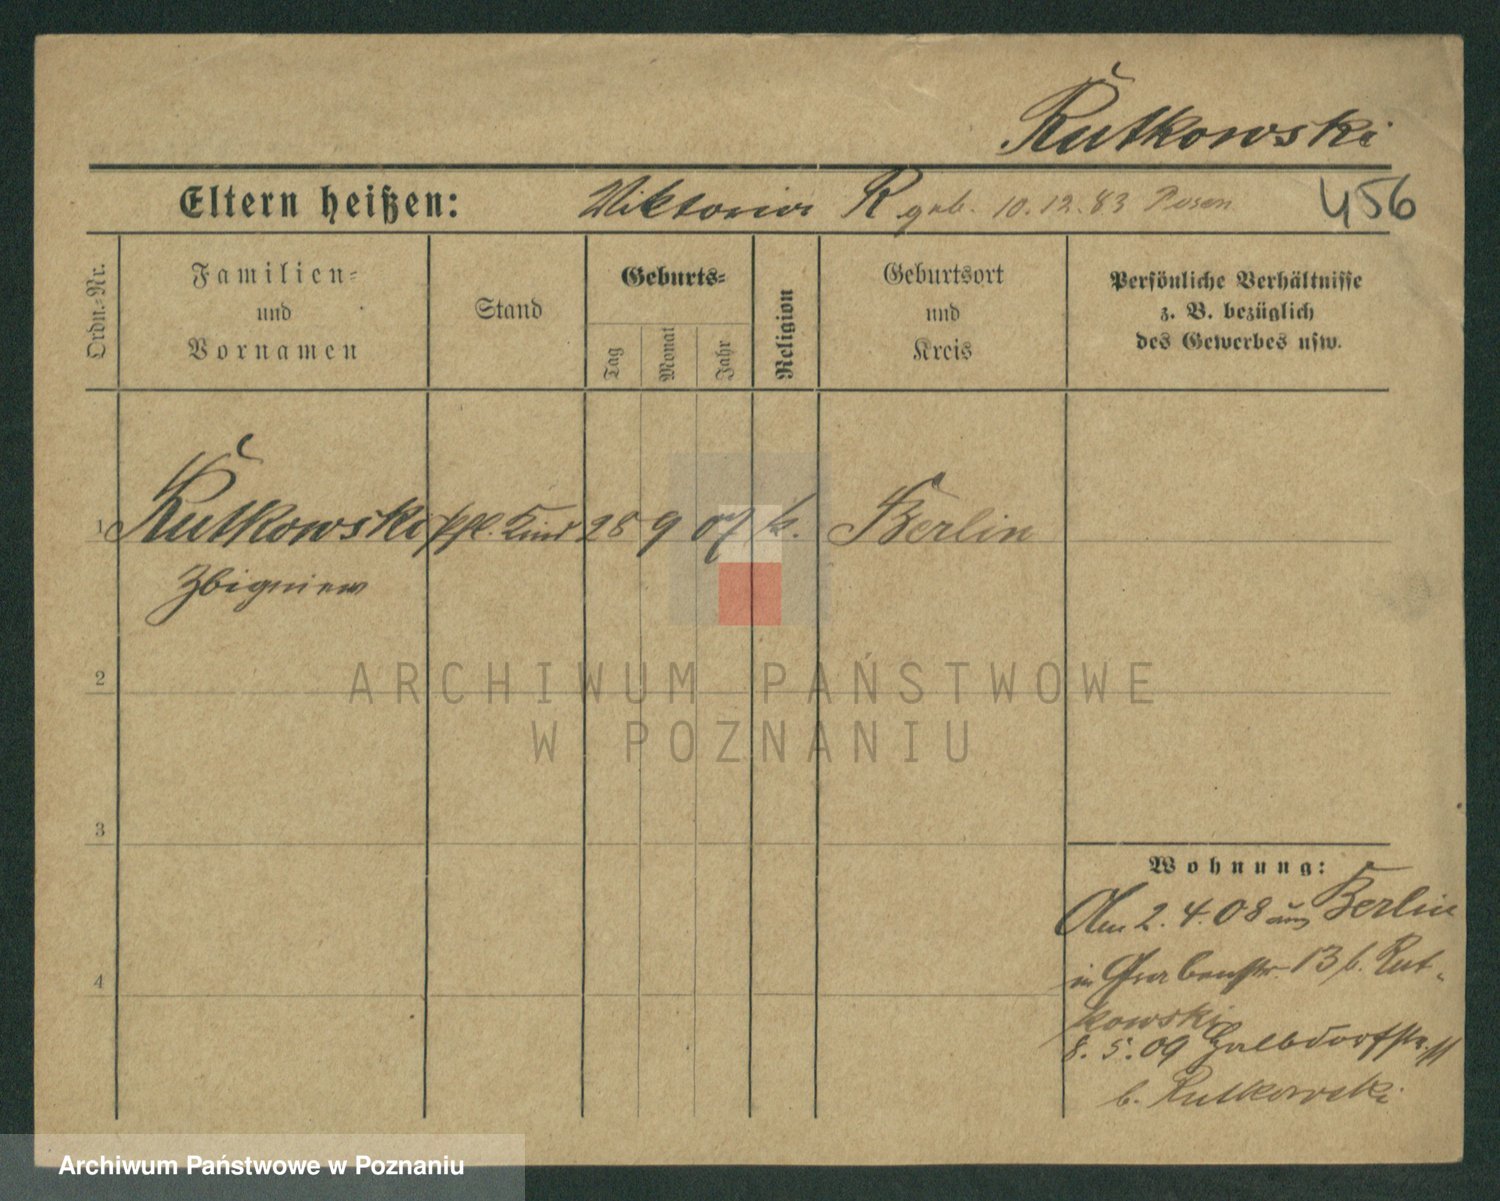 Rutkowski
Eltern heißen: Viktoria R geb. 10.12.83 Posen
456
Ordn.-Nr.
Familien-
und
Vornamen
Stand
Geburts-
Tag
Monat
Jahr
Religion
Geburtsort
und
Kreis
Persönliche Verhältnisse
z. B. bezüglich
des Gewerbes usw.
1 Rutkowski Kind 28 9 07 k. Berlin
Zbigniew
2
3
4
Wohnung:
Am 2. 4. 08 aus Berlin
in Grabenstr. 13 b. Rut-
kowski
8. 5. 09 Halbdorfstr. 
b. Rutkowski
ARCHIWUM PAŃSTWOWE
W POZNANIU
Archiwum Państwowe w Poznaniu